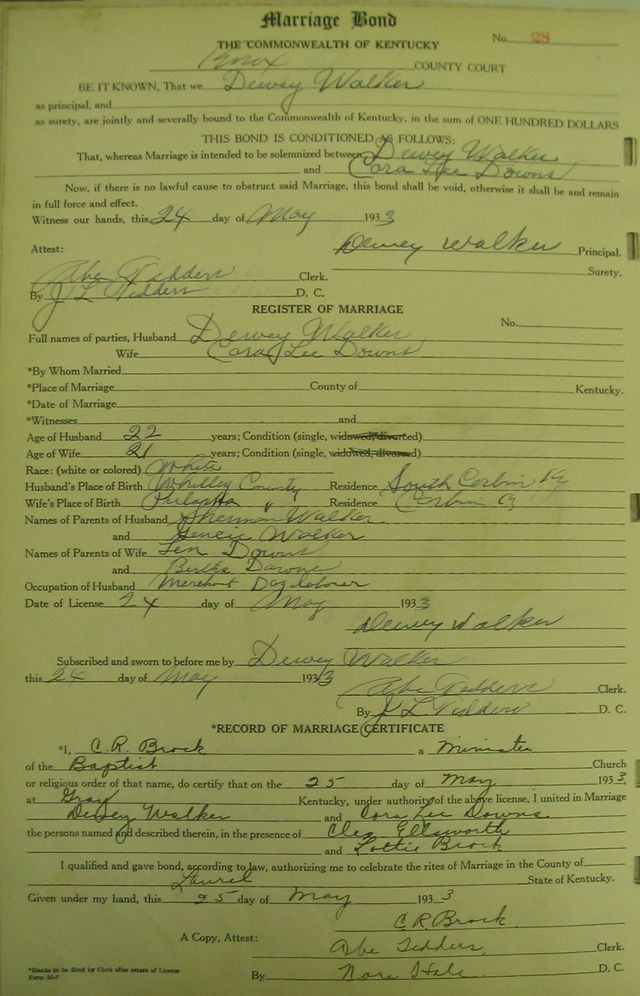 Marriage Bond
No. 28
THE COMMONWEALTH OF KENTUCKY
Knox COUNTY COURT
BE IT KNOWN, That we Dewey Walker
as principal, and
as surety, are jointly and severally bound to the Commonwealth of Kentucky, in the sum of ONE HUNDRED DOLLARS
THIS BOND IS CONDITIONED AS FOLLOWS:
That, whereas Marriage is intended to be solemnized between Dewey Walker
and Cora Lee Downs
Now, if there is no lawful cause to obstruct said Marriage, this bond shall be void, otherwise it shall be and remain
in full force and effect.
Witness our hands, this 24 day of May 1933
Dewey Walker Principal.
Attest:
Surety.
Abe Tedders Clerk.
By J L Tedders D. C.
REGISTER OF MARRIAGE
No.
Full names of parties, Husband Dewey Walker
Wife Cora Lee Downs
*By Whom Married
*Place of Marriage County of Kentucky.
*Date of Marriage
*Witnesses and
Age of Husband 22 years; Condition (single, widowed, divorced)
Age of Wife 21 years; Condition (single, widowed, divorced)
Race: (white or colored) White
Husband's Place of Birth Whitley County Residence South Corbin Ky
Wife's Place of Birth " Residence Corbin Ky
Names of Parents of Husband Sherman Walker
and Walker
Names of Parents of Wife Len Downs
and Bertha
Occupation of Husband Merchant Day laborer
Date of License 24 day of May 1933
Dewey Walker
Subscribed and sworn to before me by Dewey Walker
this 24 day of May 1933
Abe Tedders Clerk.
By J L Tedders D. C.
*RECORD OF MARRIAGE CERTIFICATE
*I, C. R. Brock a Minister
of the Baptist Church
or religious order of that name, do certify that on the 25 day of May 1933.
at Gray Kentucky, under authority of the above license, I united in Marriage
Dewey Walker and Cora Lee Downs
the persons named and described therein, in the presence of Cleo Ellsworth
and Lottie Brock
I qualified and gave bond, according to law, authorizing me to celebrate the rites of Marriage in the County of
Laurel State of Kentucky.
Given under my hand, this 25 day of May 1933
C R Brock
A Copy, Attest: Abe Tedders, Clerk.
By Nora Hale D. C.
*Blanks to be filed by Clerk after return of License